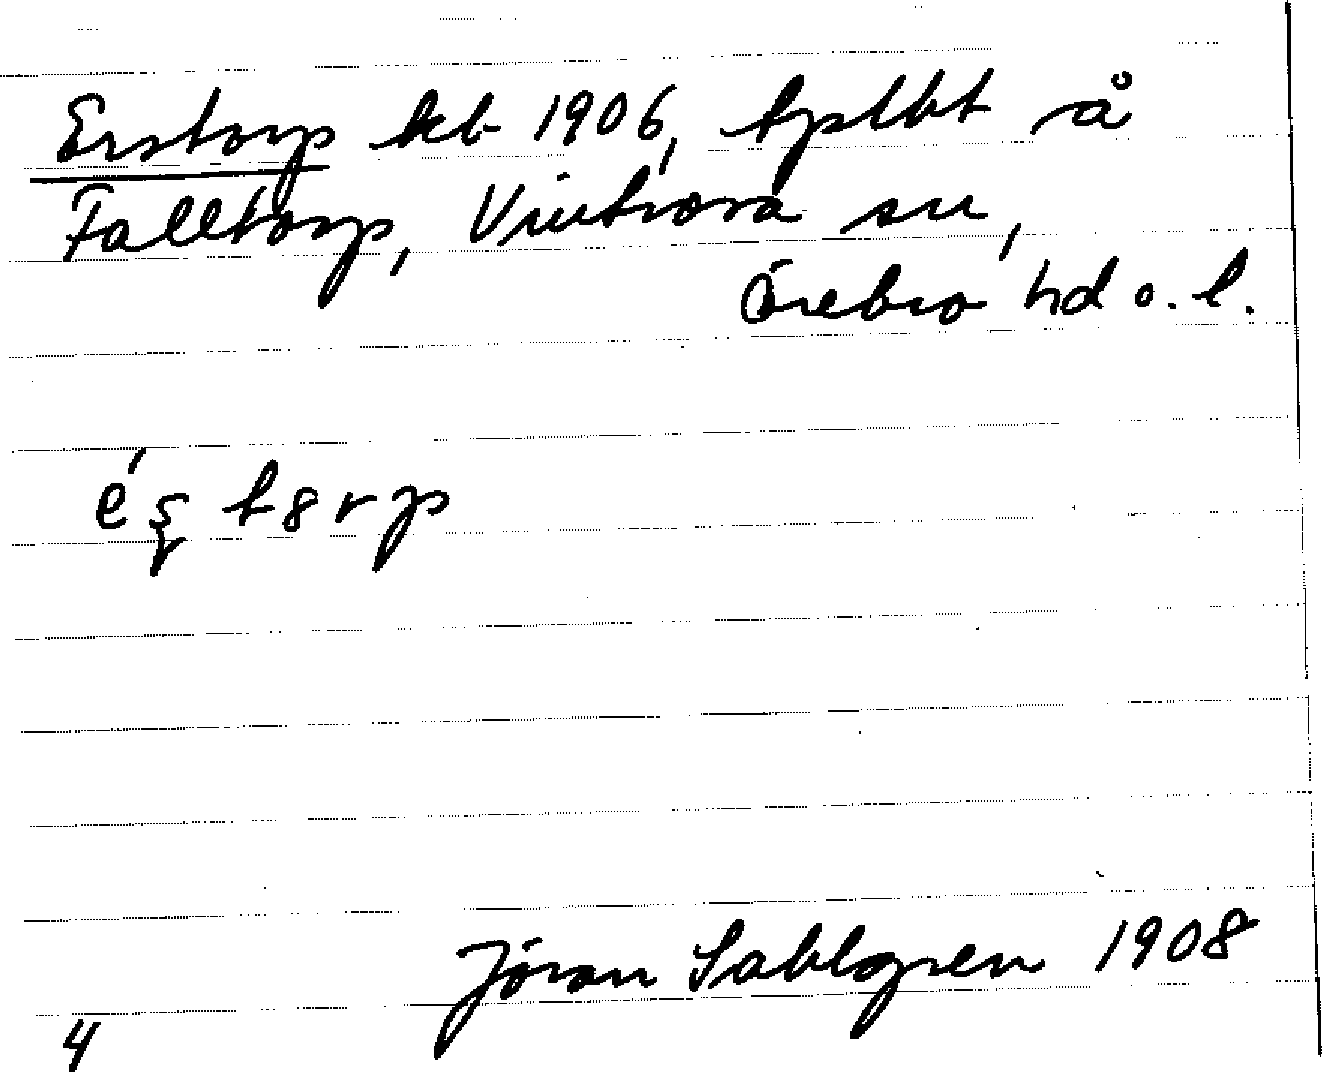 Erstorp kb 1906, tplbt å
Falltorp, Vintrosa sn,
Örebro hd o. l.
é ş t 8 r p
Jöran Sahlgren 1908
4